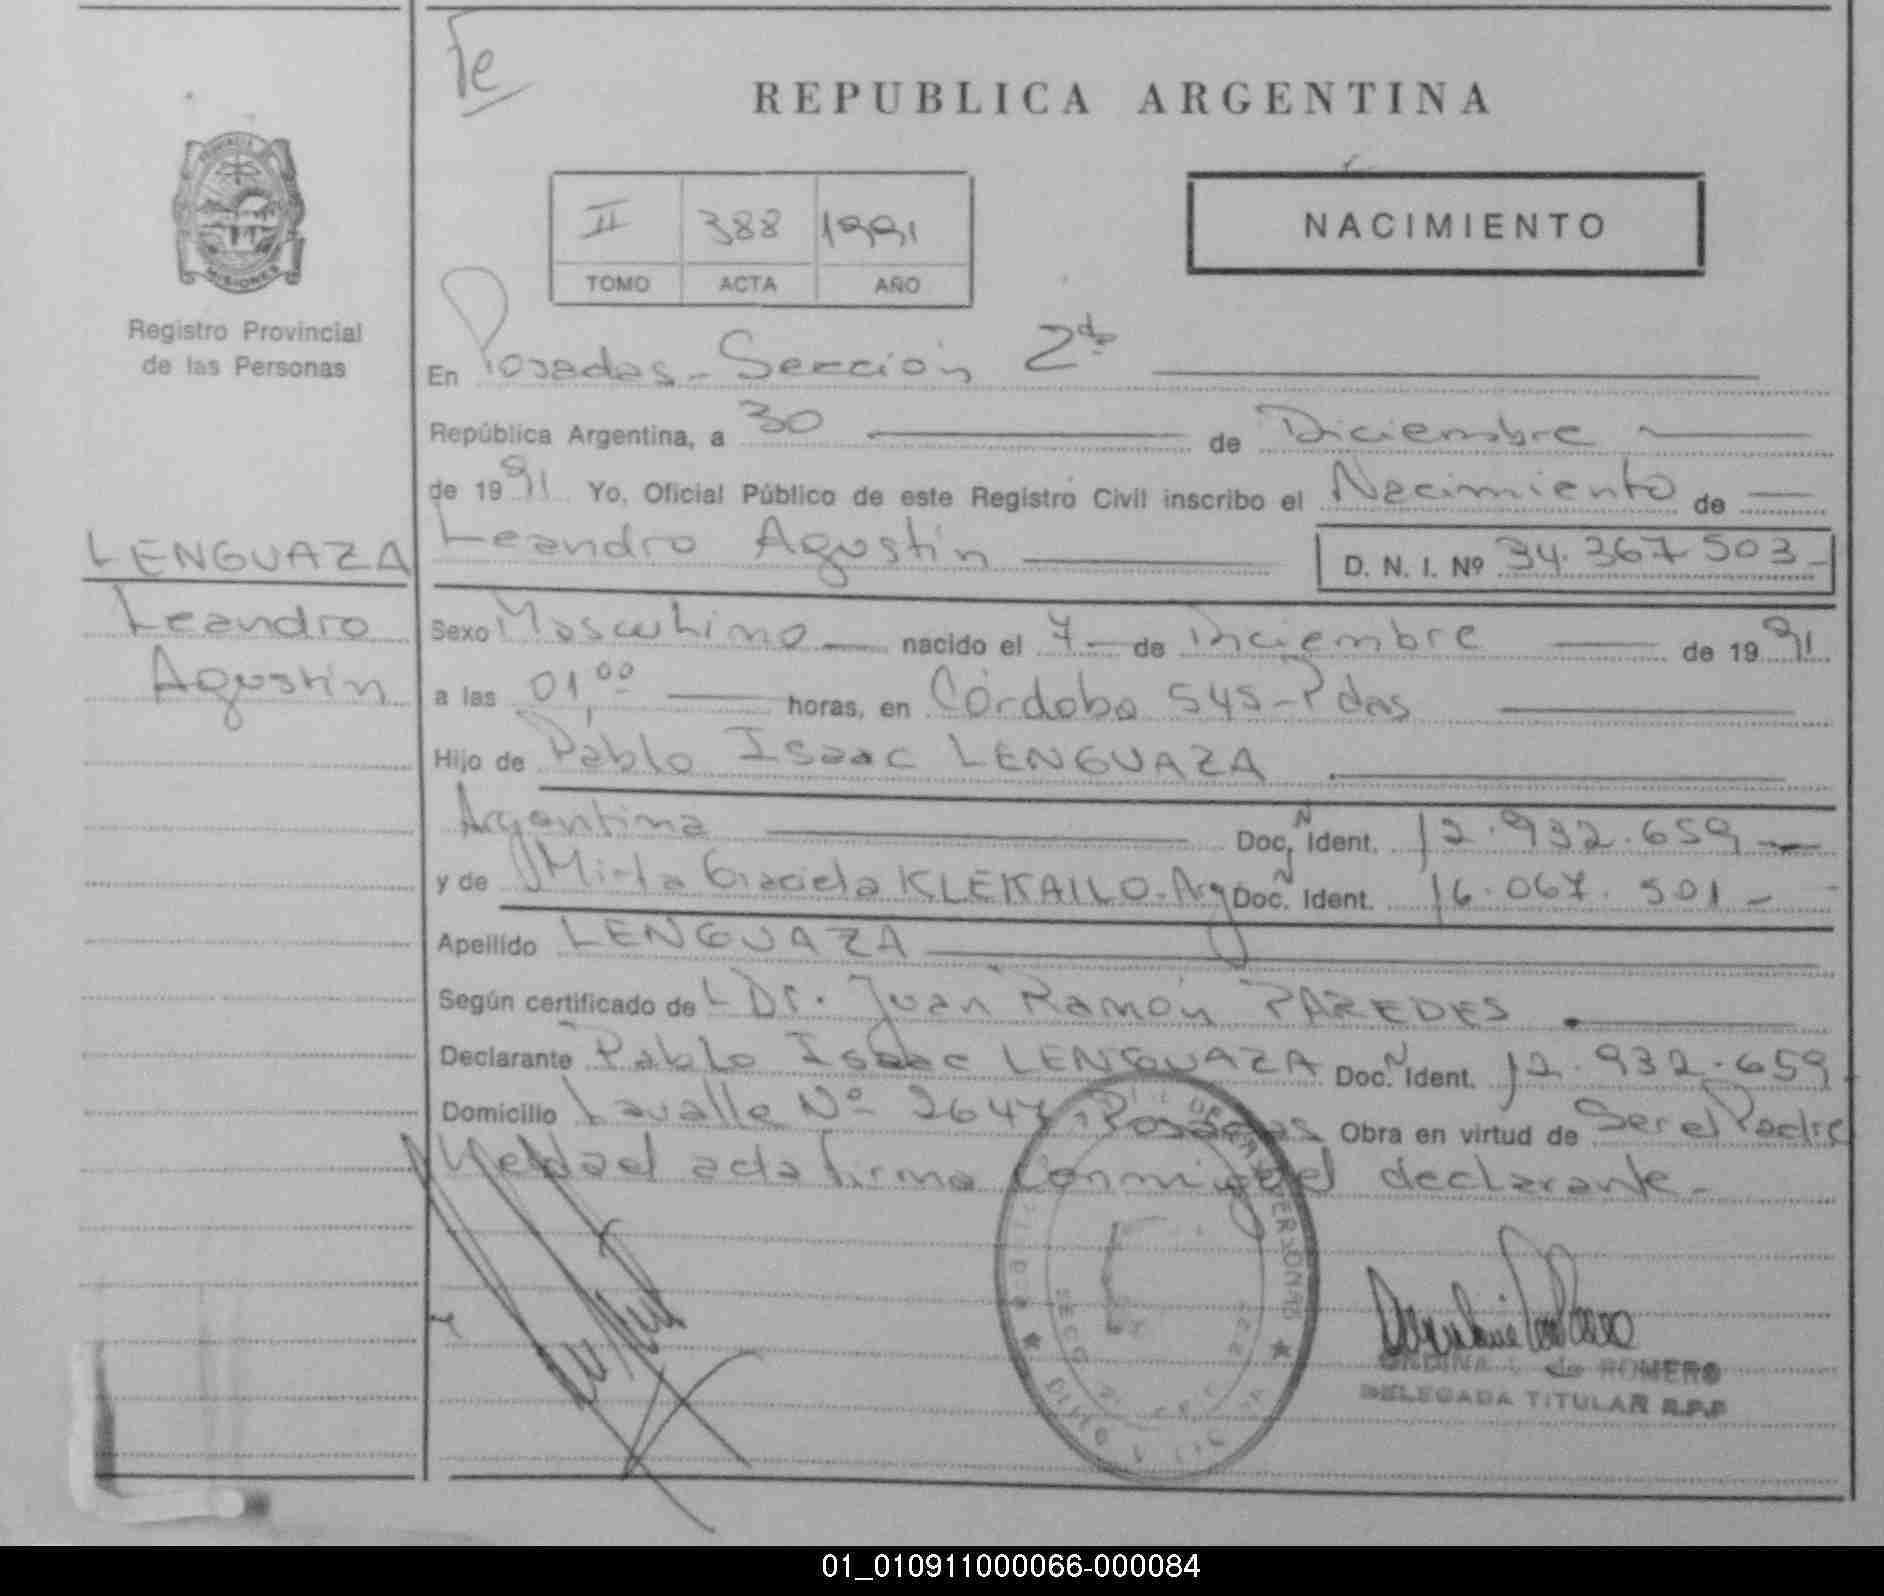 Te
REPUBLICA ARGENTINA
PROVINCIA
MISIONES
Registro Provincial
de las Personas
II 388 1991
TOMO ACTA AÑO
NACIMIENTO
En Posadas - Sección 2da
República Argentina, a 30 de Diciembre
de 1991 Yo, Oficial Público de este Registro Civil inscribo el Nacimiento de
LENGUAZA
Leandro
Agustín
Leandro Agustín D. N. I. Nº 34.367.503-
Sexo Masculino nacido el 7 de Diciembre de 1991
a las 01,00 horas, en Córdoba 545 - Pdas
Hijo de Pablo Isaac LENGUAZA
Argentina Doc. N Ident. 12.932.659
y de Mirta Graciela KLEKAILO - Arg Doc. N Ident. 16.067.501-
Apellido LENGUAZA
Según certificado de L Dr. Juan Ramón PAREDES
Declarante Pablo Isaac LENGUAZA Doc. N Ident. 12.932.659
Domicilio Lavalle Nº 2647 - Posadas Obra en virtud de Ser el Padre
Leída el acta firma conmigo el declarante.-
PERSONAS
ONDINA de ROMERO
DELEGADA TITULAR R.P.P
01_010911000066-000084